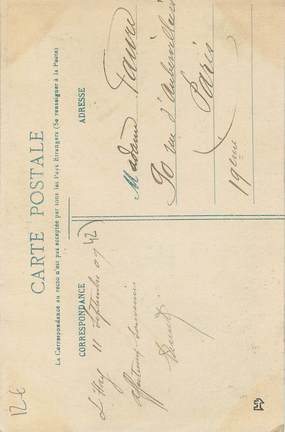 CARTE POSTALE
La Correspondance au recto n'est pas acceptée par tous les Pays Étrangers (Se renseigner à la Poste)
CORRESPONDANCE
11 Septembre 09
(42)
affectueux souvenirs
ADRESSE
Madame Faure
90 rue d'Aubervilliers
Paris
19ème
12€